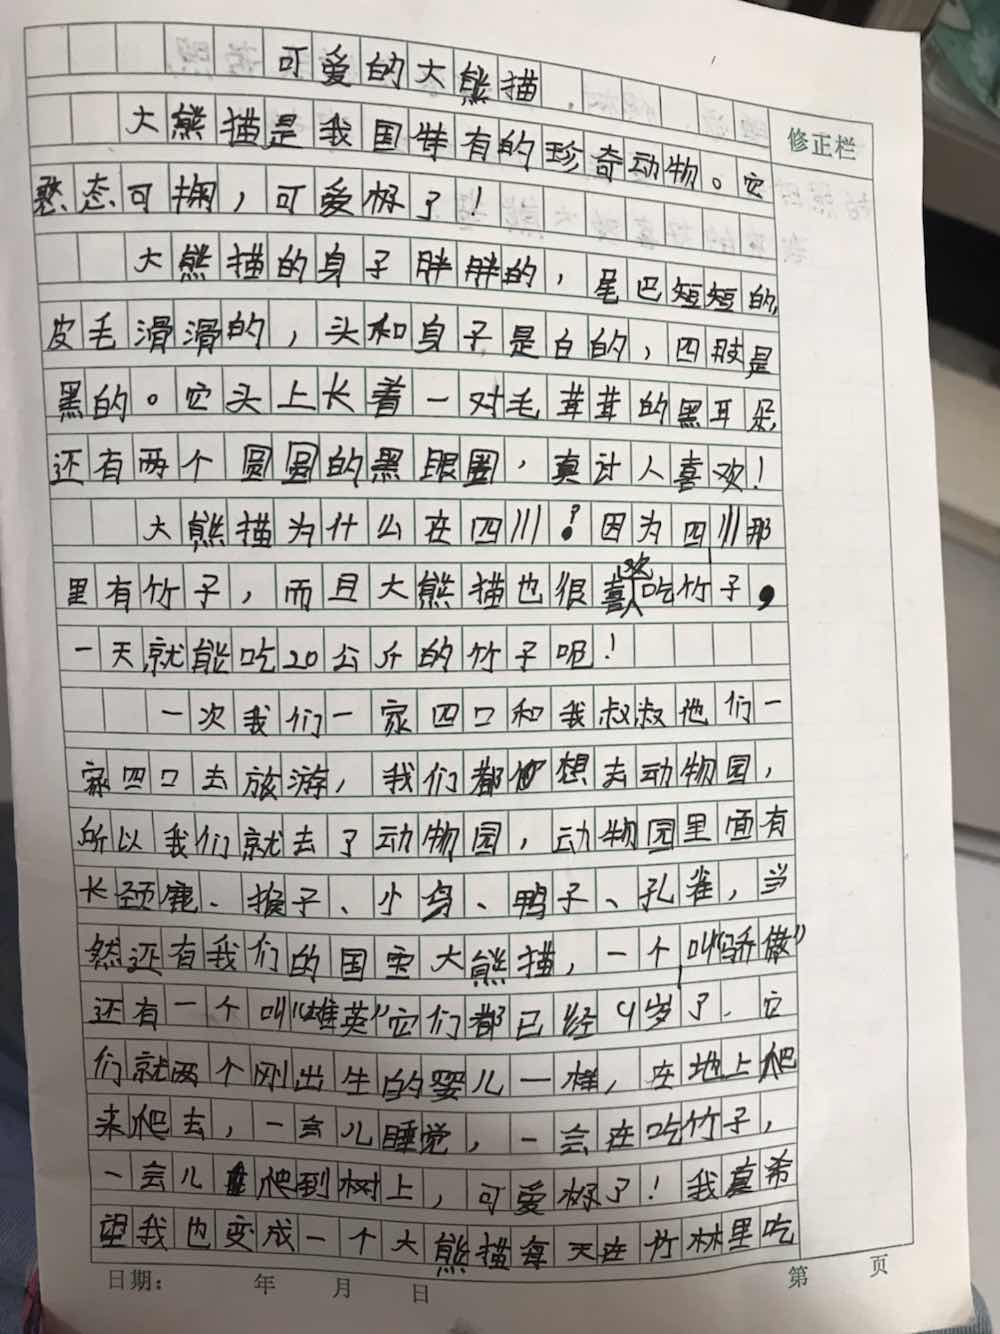 可爱的大熊猫
修正栏
大熊猫是我国特有的珍奇动物。它
憨态可掬，可爱极了！
大熊猫的身子胖胖的，尾巴短短的，
皮毛滑滑的，头和身子是白的，四肢是
黑的。它头上长着一对毛茸茸的黑耳朵，
还有两个圆圆的黑眼圈，真讨人喜欢！
大熊猫为什么在四川？因为四川那
里有竹子，而且大熊猫也很喜欢吃竹子，
一天就能吃20公斤的竹子呢！
一次我们一家四口和我叔叔他们一
家四口去旅游，我们都想去动物园，
所以我们就去了动物园，动物园里面有
长颈鹿、猴子、小鸟、鸭子、孔雀，当
然还有我们的国宝大熊猫，一个叫“骄傲”
还有一个叫“雄英”它们都已经9岁了、它
们就两个刚出生的婴儿一样，在地上爬
来爬去，一会儿睡觉，一会在吃竹子，
一会儿爬到树上，可爱极了！我真希
望我也变成一个大熊猫每天在竹林里吃
日期： 年 月 日 第 页